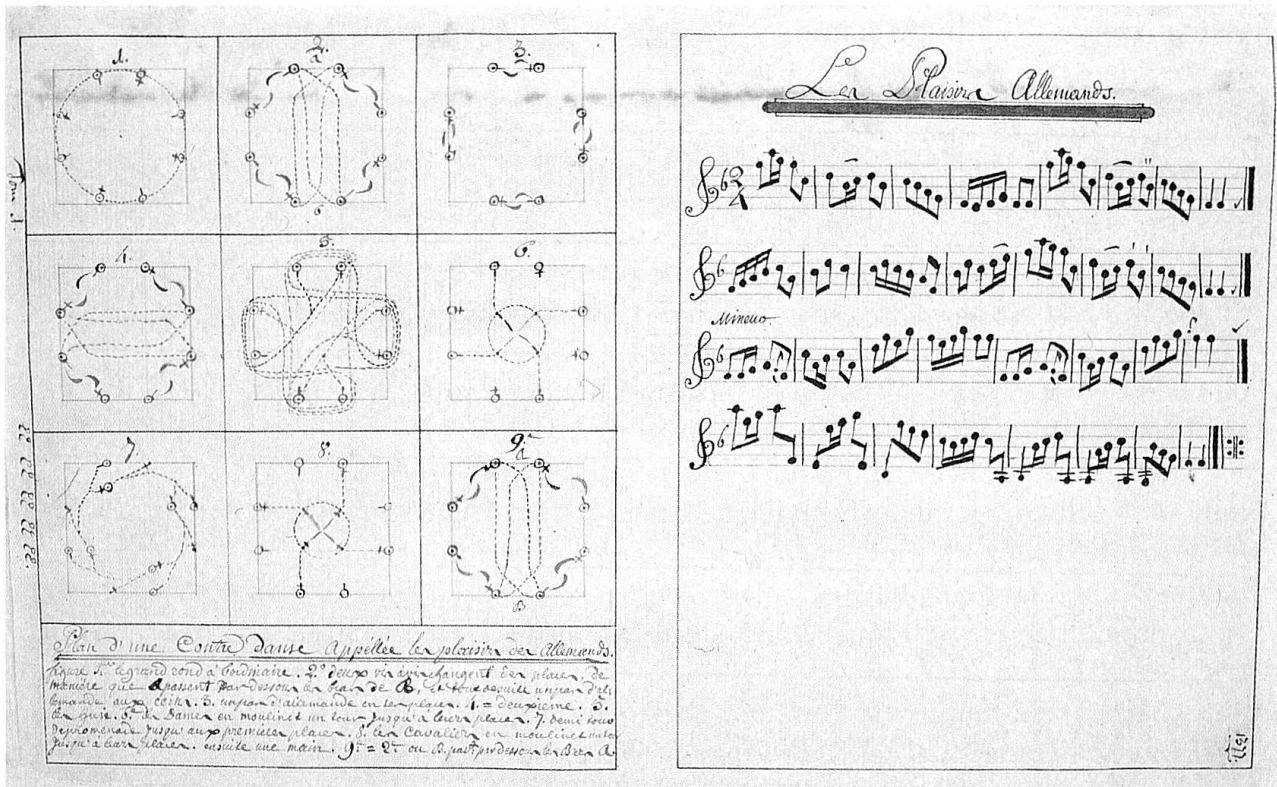 1.
2.
a
3.
4.
5.
6.
7.
8.
9.
a
B
Plan d'une Contre danse Appéllée les plaisirs des Allemands.
figure 1.re le grand rond à l'ordinaire. 2.e deux vis avis changent des places, de
manière que A passent par dessous les bras de B, et tout de suite un pas d'al
lemande aux coins. 3. un pas d'allemande en les places. 4. = deuxieme. 5.
6.e les Dames en moulinet un tour jusqu'a leurs places. 7. demi tour
de promenade jusqu'aux premieres places. 8. les Cavaliers en moulinet
jusqu'a leurs places. ensuite une main. 9.e = 2.e ou B. par dessous les Bras A.
Les Plaisirs Allemands.
2
4
Mineur